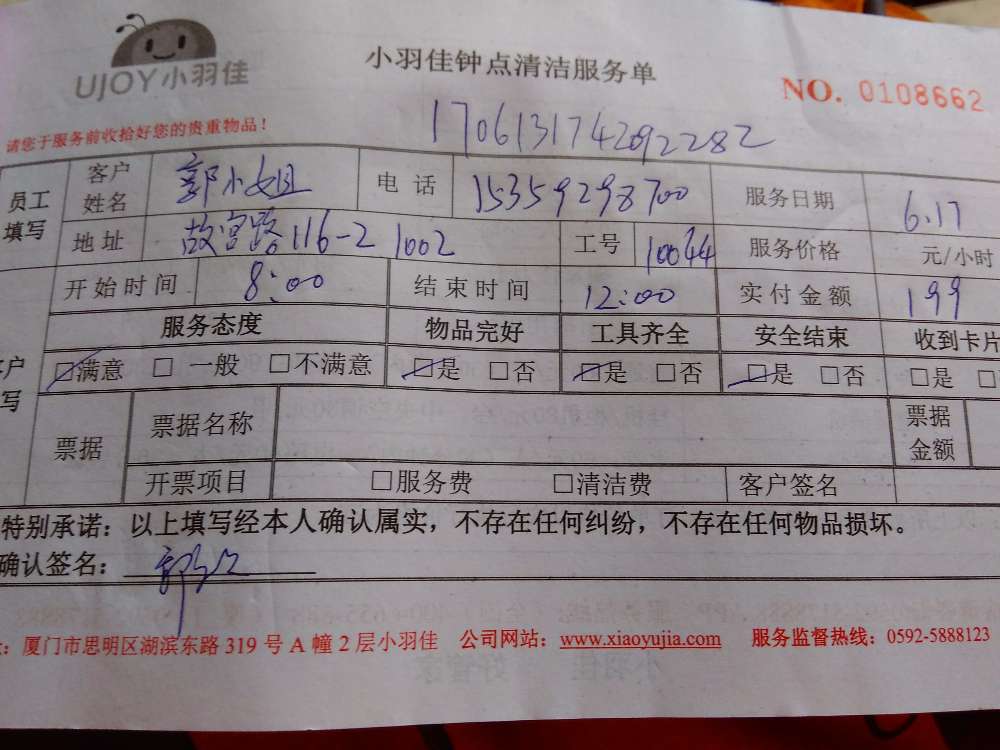 UJOY小羽佳
小羽佳钟点清洁服务单
NO. 0108662
请您于服务前收拾好您的贵重物品!
170613174292282
员工填写 客户姓名 郭小姐 电话 15359298700 服务日期 6.17
地址 故宫路116-2 1002 工号 10044 服务价格 元/小时
开始时间 8:00 结束时间 12:00 实付金额 199
服务态度 物品完好 工具齐全 安全结束 收到卡片
户写 □满意 □一般 □不满意 □是 □否 □是 □否 □是 □否 □是
票据 票据名称 票据金额
开票项目 □服务费 □清洁费 客户签名
特别承诺:以上填写经本人确认属实,不存在任何纠纷,不存在任何物品损坏。
确认签名:
:厦门市思明区湖滨东路 319 号 A 幢 2 层小羽佳 公司网站:www.xiaoyujia.com 服务监督热线:0592-5888123